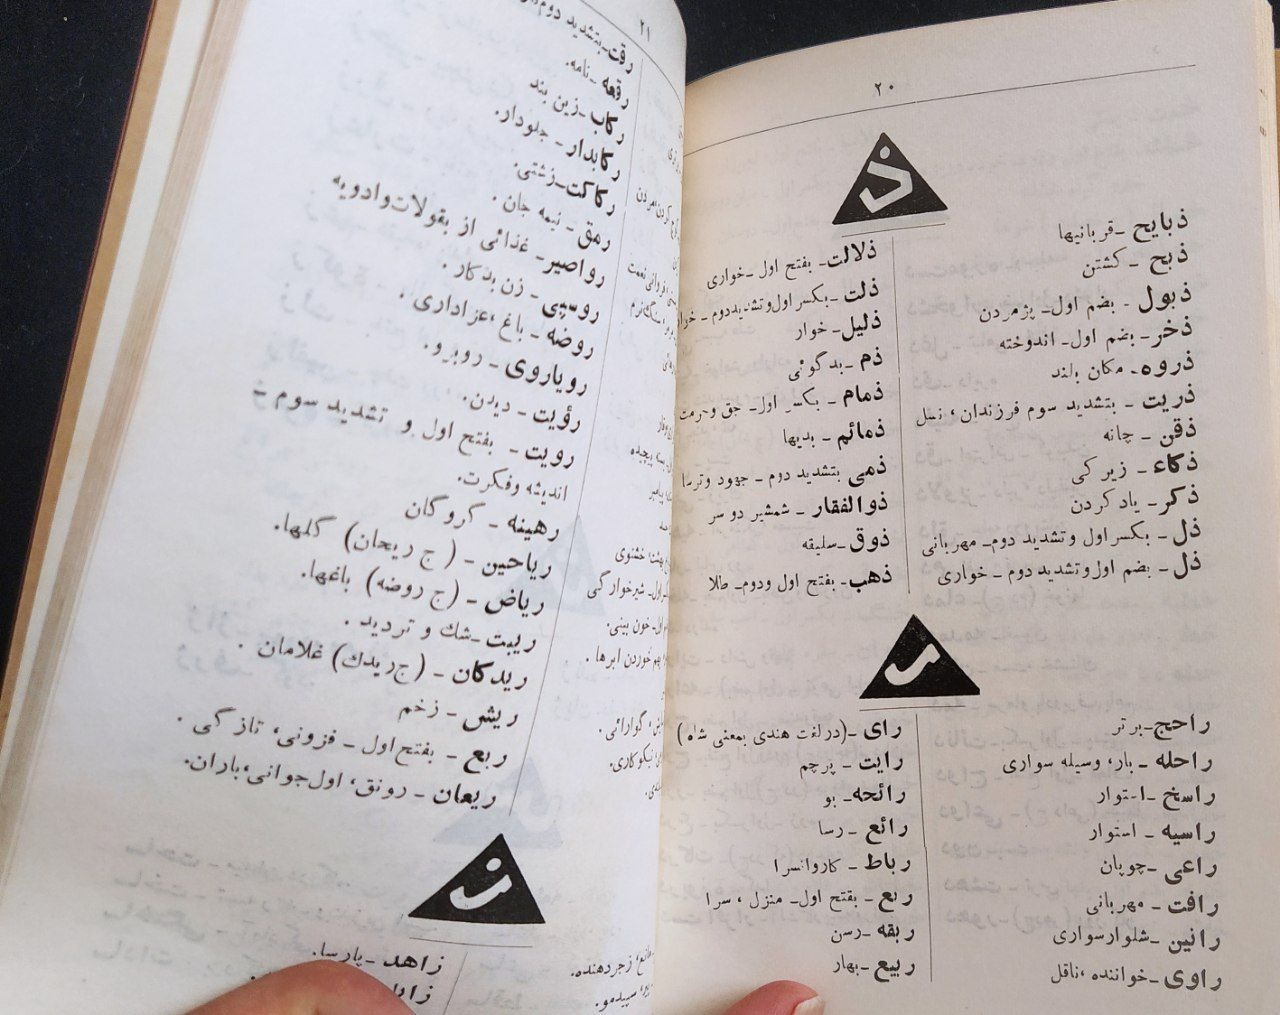 ۲۰
ذ
ذبایح - قربانیها
ذبح - کشتن
ذبول - بضم اول - پژمردن
ذخر - بضم اول - اندوخته
ذروه - مکان بلند
ذریت - بتشدید سوم فرزندان، نسل
ذقن - چانه
ذکاء - زیرکی
ذکر - یاد کردن
ذل - بکسر اول و تشدید دوم - مهربانی
ذل - بضم اول و تشدید دوم - خواری
ذلالت - بفتح اول - خواری
ذلت - بکسر اول و تشدید دوم -
ذلیل - خوار
ذم - بدگوئی
ذمام - بکسر اول - حق و حرمت
ذمائم - بدیها
ذمی - بتشدید دوم - جهود و ترسا
ذوالفقار - شمشیر دو سر
ذوق - سلیقه
ذهب - بفتح اول ودوم - طلا
ر
راجح - برتر
راحله - بار، وسیله سواری
راسخ - استوار
راسیه - استوار
راعی - چوپان
رافت - مهربانی
رانین - شلوار سواری
راوی - خواننده، ناقل
رای - (در لغت هندی بمعنی شاه)
رایت - پرچم
رائحه - بو
رائع - رسا
رباط - کاروانسرا
ربع - بفتح اول - منزل، سرا
ربقه - رسن
ربیع - بهار
۲۱
خشنودی
شیرخوارگی
خون بینی.
بهم خوردن ابرها.
گوارائی.
نیکوکاری.
رقت - بتشدید دوم
رقعه - نامه.
رکاب - زین بند
رکابدار - جلودار.
رکاکت - زشتی.
رمق - نیمه جان.
رواصیر - غذائی از بقولات و ادویه
روسپی - زن بدکار.
روضه - باغ، عزاداری.
رویاروی - روبرو.
رؤیت - دیدن.
رویت - بفتح اول و تشدید سوم -
اندیشه وفکرت.
رهینه - گروگان
ریاحین - (ج ریحان) گلها.
ریاض - (ج روضه) باغها.
ریبت - شك و تردید.
ریدکان - (ج ریدك) غلامان.
ریش - زخم
ریع - بفتح اول - فزونی، تازگی.
ریعان - رونق، اول جوانی، باران.
ز
زاهد - پارسا.
زجردهنده.
سپیدمو.